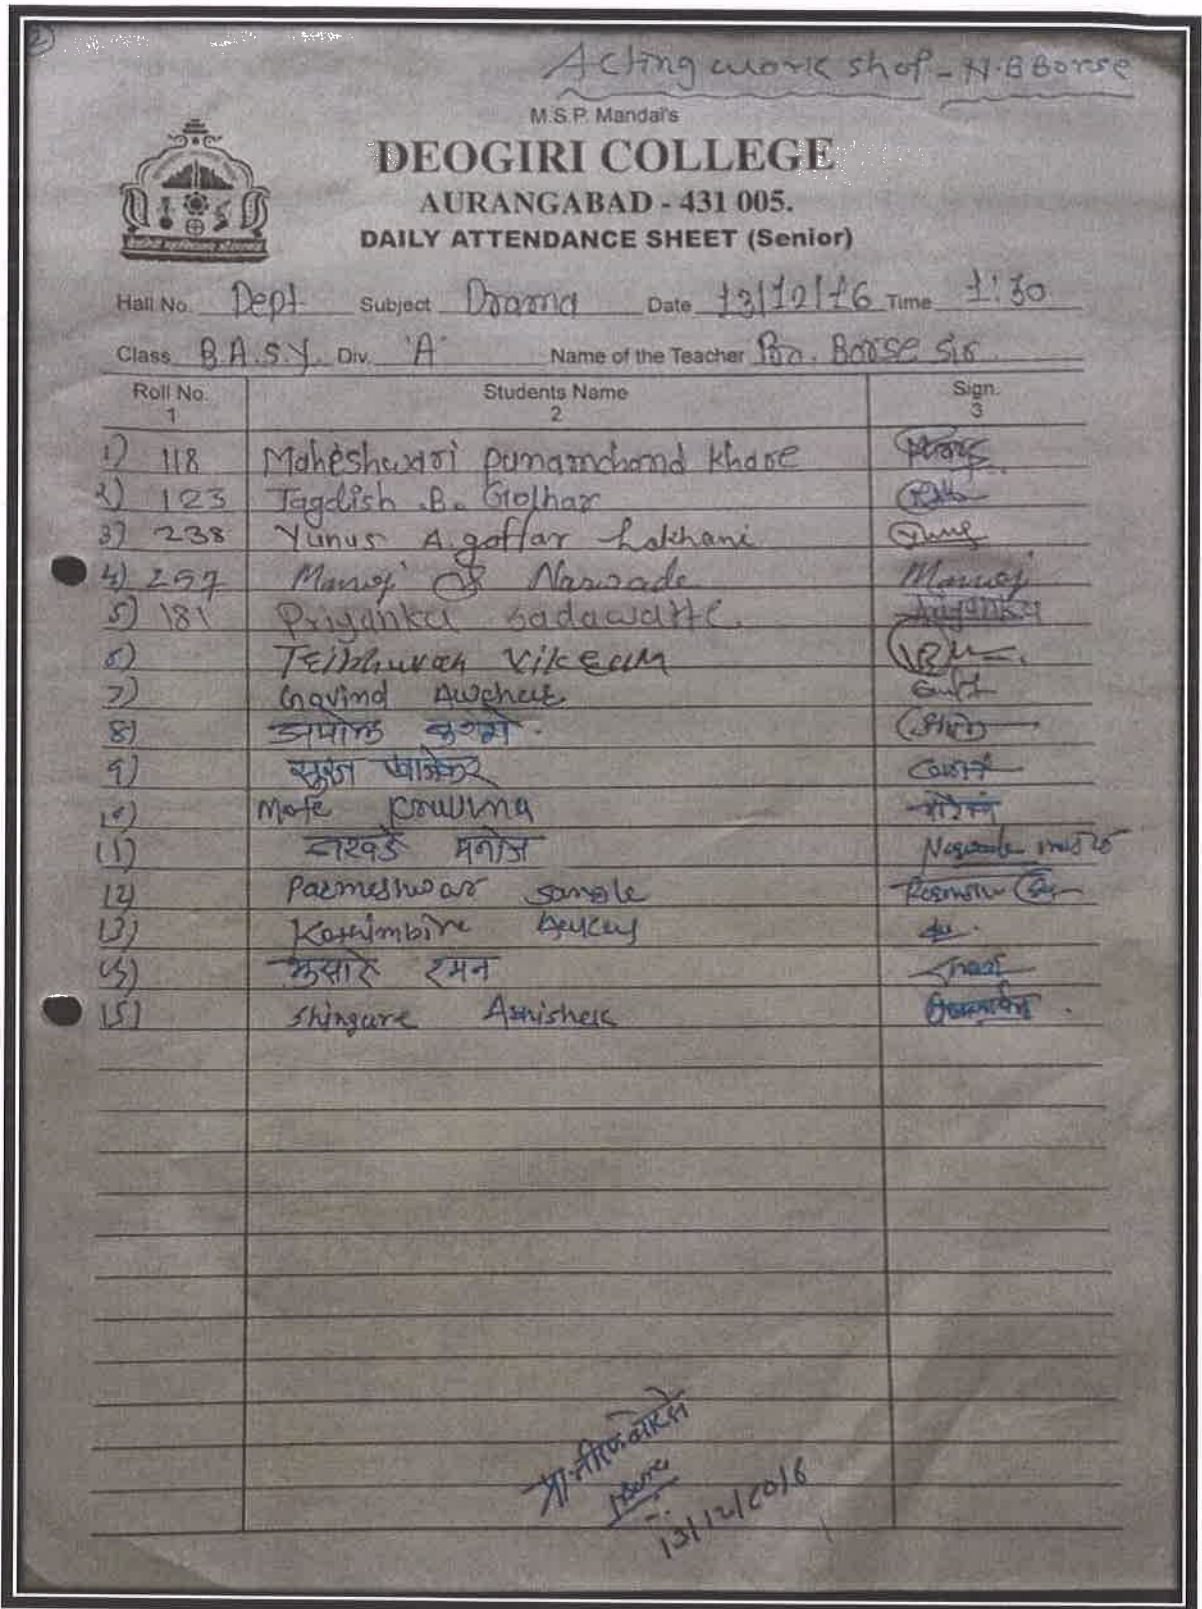 2)
Acting work shop - N.B Borse
M.S.P. Mandal's
DEOGIRI COLLEGE
AURANGABAD - 431 005.
DAILY ATTENDANCE SHEET (Senior)
Hall No. Dept Subject Drama Date 13/12/16 Time 1:30
Class B.A.S.Y. Div. 'A' Name of the Teacher Borse Sir
Roll No. Students Name Sign.
1 2 3
1) 118 Maheshwari Punamchand Khare
2) 123 Jagdish .B. Golhar
3) 238 Yunus A.gaffar Lakhani
4) 257 Manoj Narwade Manoj
5) 181 Priyanka Sadawarte Priyanka
6) Teibhuvan Vikram
7) Govind Awchar
8)
9) सुरज
10) More
11) नरवडे मनोज
12) Parmeshwar
13)
रमन
15) Shingare Abhishek
13/12/2016